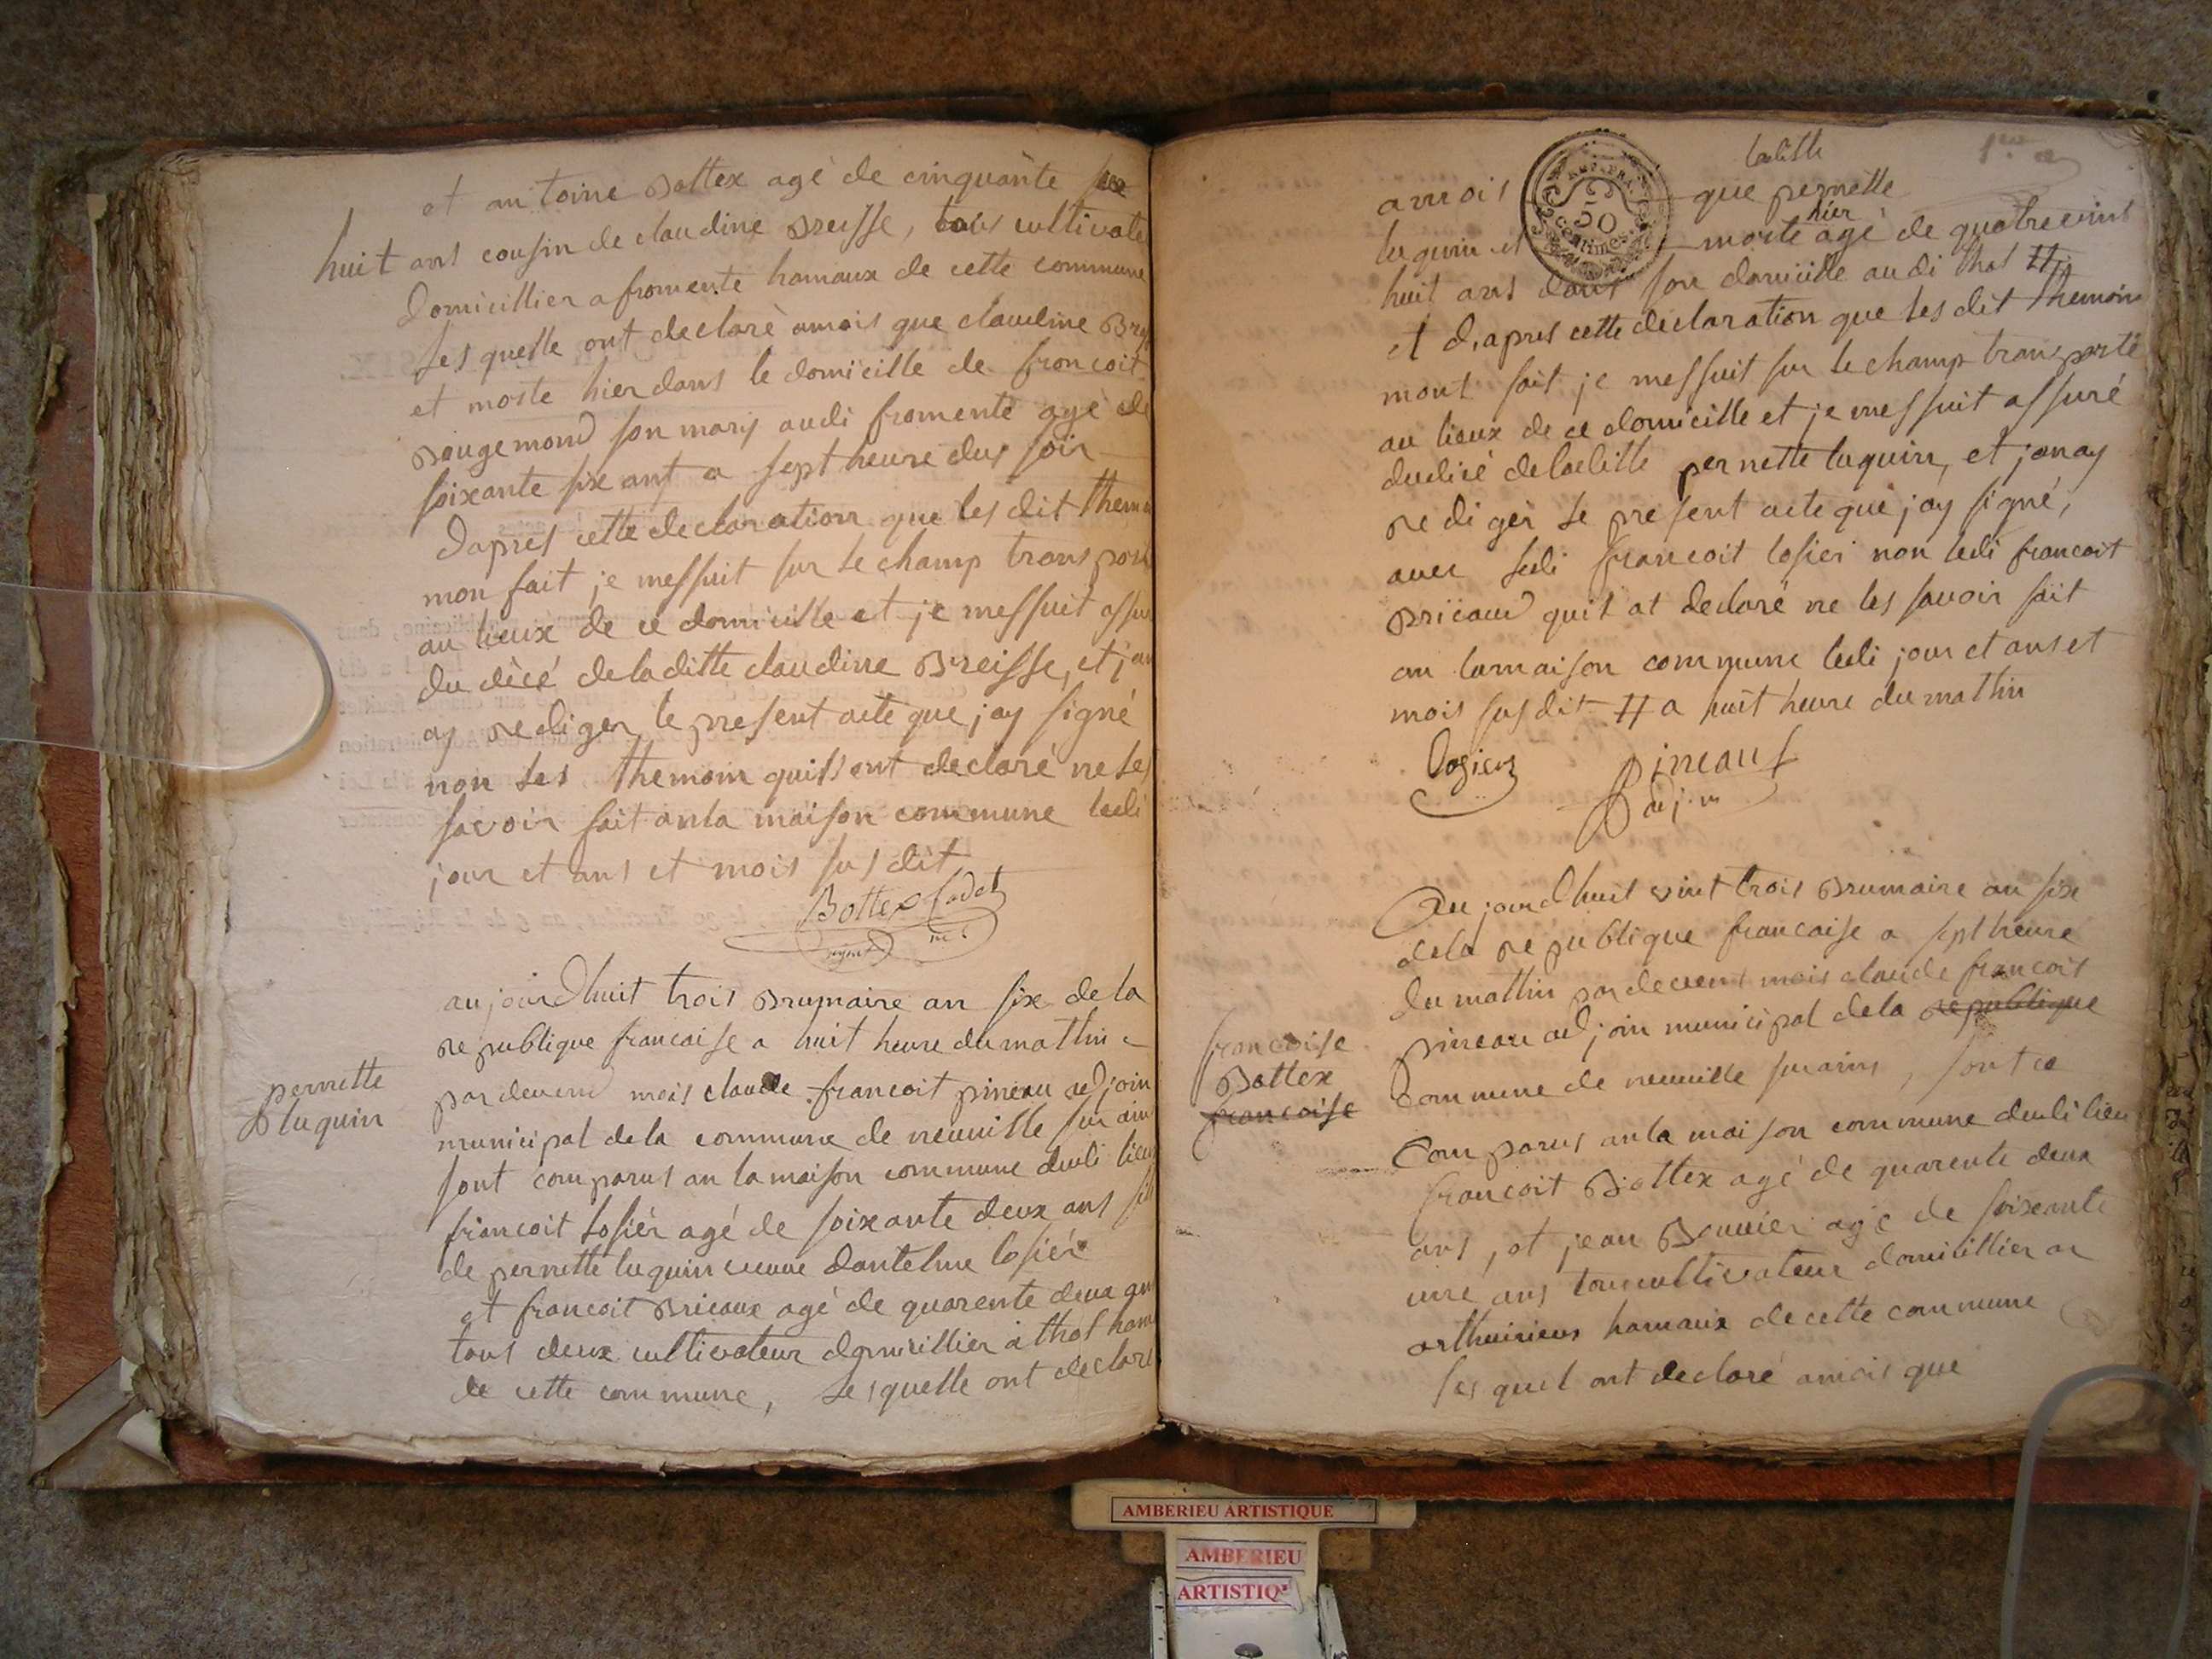 et antoine Bottex agé de cinquante
huit ans cousin de claudine Breisse, tous cultivate
domicillier a fromente hamaux de cette commune
les quelle ont declaré amois que claudine Brey
et morte hier dans le domicille de francoit
Rougemond son mary audi fromente agé de
soixante six ans a sept heure dus soir
Dapres cette declaration que les dit them
mon fait je messuit sur le champ transport
au lieux de ce domicille et je messuit assur
du décé deladitte claudine Breisse, et jan
ay rediger le present acte que jay signé
non les themoin quissont declaré ne les
savoir fait anla maison commune ledi
jour et ans et mois sus dit
Bottex Cadet
aujourdhuit trois Brumaire an six de la
republique francaise a huit heure du mattin
pardevend mois claude francoit pineau adjoin
municipal dela commune de neuville sur ain
sont comparus an la maison commune dudi lieu
francoit losier agé de soixante deux ans fil
de pernette luquin veuve dantelme losier
et francoit Bricaux agé de quarente deux an
tous deux cultivateur domicillier a thol ham
de cette commune, les quelle ont declaré
pernette
luquin
ladille
amois que pernette
luquin et morte hier agé de quatrevint
huit ans dans son domicille audi thol #
et dapres cette declaration que les dit themoin
mont fait je messuit sur le champ transporté
au lieux de ce domicille et je messuit assuré
dudicé deladitte pernette luquin, et janay
rediger le present acte que jay signé,
avec ledi francoit losier non ledi francoit
Bricaud quil at declaré ne les savoir fait
an lamaison commune ledi jour et ans et
mois susdit # a huit heure du mattin
logier
pineau
adj.m
Au jourdhuit vint trois Brumaire an six
dela republique francaise a sept heure
du mattin pardevent mois claude francois
pineau adjoin municipal dela republique
commune de neuville surains, sont ce
comparus anla maison commune dudi lieu
francoit Bottex agé de quarente deux
ans, et jean Bouvier agé de soixante
une ans tous cultivateur domicillier a
arthuirieus hamaux de cette commune
lesquel ont declaré amois que
francoise
Bottex
francoise
REP. FRA.
50
Centimes.
AMBERIEU ARTISTIQUE
AMBERIEU
ARTISTIQ